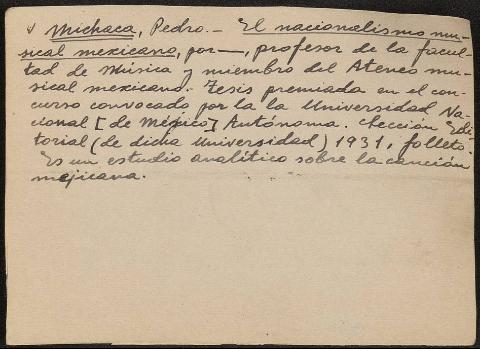 Michaca, Pedro.- El nacionalismo mu-
sical mexicano, por —, profesor de la facul-
tad de Música y miembro del Ateneo mu-
sical mexicano. Tesis premiada en el con-
curso convocado por la la Universidad Na-
cional [de México] Autónoma. Sección Edi-
torial (de dicha Universidad) 1931, folleto.
Es un estudio analítico sobre la canción
mejicana.